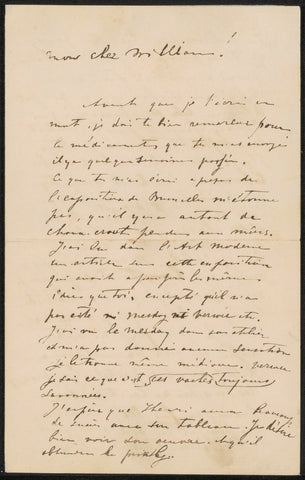 mon cher William!
Avant que je t'écrive un
mot, je dois te bien remercier pour
le médicament que tu m'as envoyé
il y a quelques semaines passées.
Ce que tu m'as écrit a propos de
l'exposition de Bruxelles m'étonne
pas, qu'il y a autant de
chou croute pendue aux murs.
J'ai lu dans l'Art moderne
un article sur cette exposition
qui avait a peu près les mêmes
idées que toi, excepté qu'il n'a
pas cité ni mesdag ni verveer etc.
J'ai vu le mesdag dans son atelier
et m'a pas donné aucune sensation
je le trouve même médiocre. verveer
je sais ce que c'est ses vaches toujours
savonnées.
J'espère que Henri aura
de succès avec son tableau. Je désire
bien voir son oeuvre. Qu'il
obtienne le